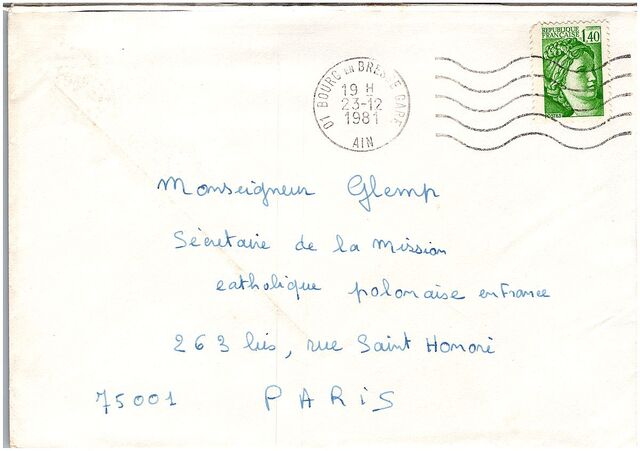 REPUBLIQUE
FRANCAISE 1,40
POSTES
01 BOURG EN BRESSE GARE
19 H
23-12
1981
AIN
Monseigneur Glemp
Sécretaire de la Mission
catholique polonaise en France
263 bis, rue Saint Honoré
75001 PARIS